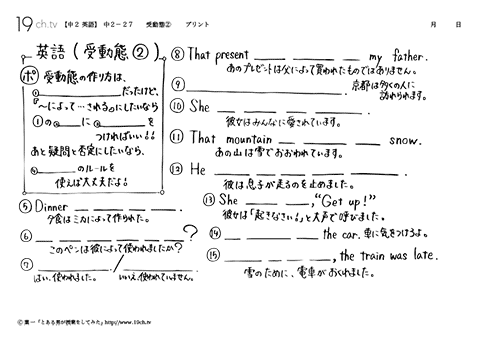 19ch.tv 【中2英語】 中2-27 受動態② プリント 月 日
英語（受動態②）
ポ 受動態の作り方は、
① だったけど、
『～によって…される』にしたいなら
①の② に③ を
つければいい！！
あと疑問と否定にしたいなら、
④ のルールを
使えば大丈夫だよ！
⑤ Dinner
夕食はミカによって作られた。
⑥ ?
このペンは彼によって使われましたか？
⑦ /
はい、使われました。 いいえ、使われていません。
⑧ That present my father.
あのプレゼントは父によって買われたものではありません。
⑨
京都は多くの人に
訪れられます。
⑩ She
彼女はみんなに愛されています。
⑪ That mountain snow.
あの山は雪でおおわれています。
⑫ He
彼は息子が走るのを止めました。
⑬ She , "Get up!"
彼女は「起きなさい！」と大声で呼びました。
⑭ the car. 車に気をつけろよ。
⑮ , the train was late.
雪のために、電車がおくれました。
© 葉一「とある男が授業をしてみた」 http://www.19ch.tv